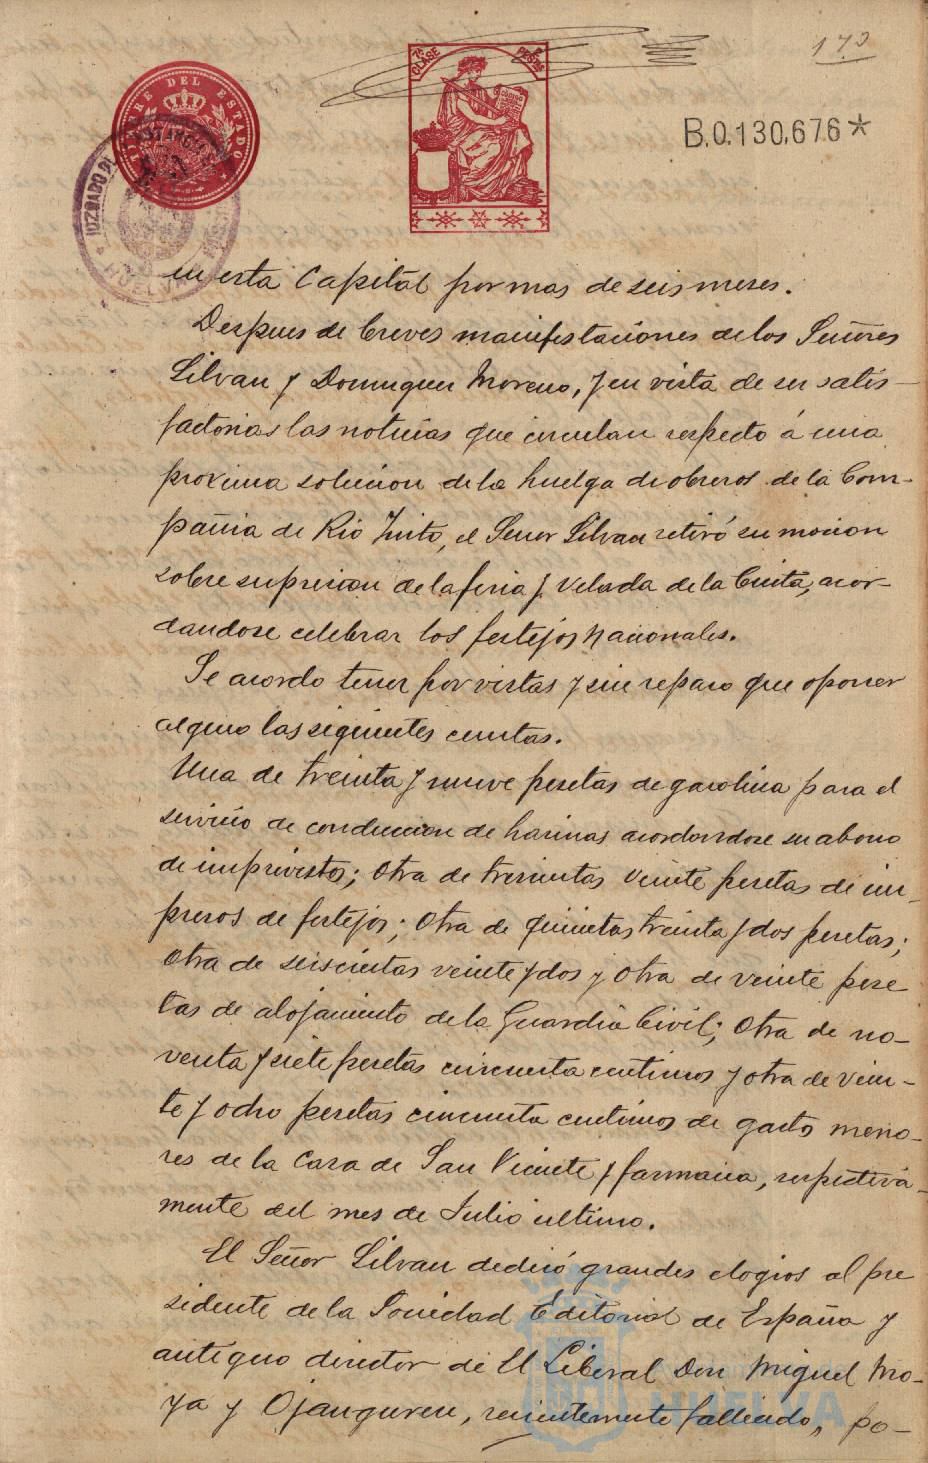 170
TIMBRE DEL ESTADO
7ª CLASE
PESETAS
B.0.130,676*
JUZGADO
HUELVA
en esta Capital por mas de seis meses.
Despues de breves manifestaciones de los Señores
Silvan y Dominguez Moreno, y en vista de ser satis-
factorias las noticias que circulan respecto á una
proxima solucion de la huelga de obreros de la Com-
pañia de Rio Tinto, el Señor Silvan retiró su mocion
sobre supresion de la feria y Velada de la Cinta, acor-
dandose celebrar los festejos Nacionales.
Se acordo tener por vistas y sin reparo que oponer
alguno las siguientes cuentas.
Una de treinta y nueve pesetas de gasolina para el
servicio de conduccion de harinas acordandose su abono
de imprevistos; Otra de trescientas veinte pesetas de im-
presos de festejos; Otra de quinientas treinta y dos pesetas;
Otra de seiscientas veinte y dos y otra de veinte pese
tas de alojamiento de la Guardia Civil; Otra de no-
venta y siete pesetas cincuenta centimos y otra de vein-
te y ocho pesetas cincuenta centimos de gastos meno-
res de la Casa de San Vicente y farmacia, respectiva-
mente del mes de Julio ultimo.
El Señor Silvan dedicó grandes elogios al pre
sidente de la Sociedad Editorial de España y
antiguo director de El Liberal Don Miguel Mo-
ya y Ojanguren, recientemente fallecido, po-
HUELVA